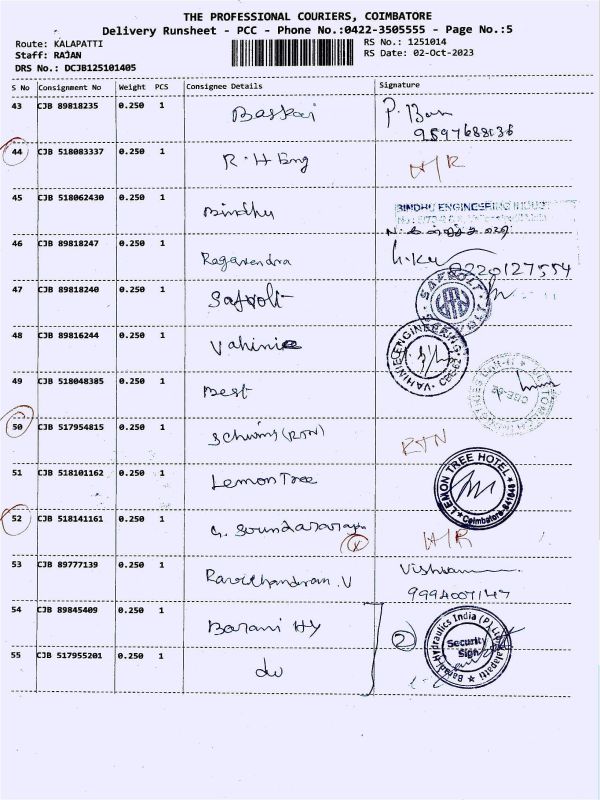 THE PROFESSIONAL COURIERS, COIMBATORE
Delivery Runsheet - PCC - Phone No.:0422-3505555 - Page No.:5
Route: KALAPATTI RS No.: 1251014
Staff: RAJAN RS Date: 02-Oct-2023
DRS No.: DCJB125101405
S No Consignment No Weight PCS Consignee Details Signature
43 CJB 89818235 0.250 1 Baskar P. Ban
9597688136
44 CJB 518083337 0.250 1 R.H Eng H/R
45 CJB 518062430 0.250 1 Bindhu BINDHU ENGINEERING
46 CJB 89818247 0.250 1 Ragavendra
8220127554
47 CJB 89818240 0.250 1 Safvolt SAFVOLT
48 CJB 89816244 0.250 1 Vahinie VAHINIE ENGINEERING CBE-62
49 CJB 518048385 0.250 1 Best
50 CJB 517954815 0.250 1 Schwins (RTN) RTN
51 CJB 518101162 0.250 1 Lemon Tree LEMON TREE HOTEL Coimbatore-641048
52 CJB 518141161 0.250 1 G. Soundararajan H/R
53 CJB 89777139 0.250 1 Ravichandran.V
9994007147
54 CJB 89845409 0.250 1 Barani Hy 2 Barani Hydraulics India (P) Ltd Kalapatti
Security
Sign
55 CJB 517955201 0.250 1 do